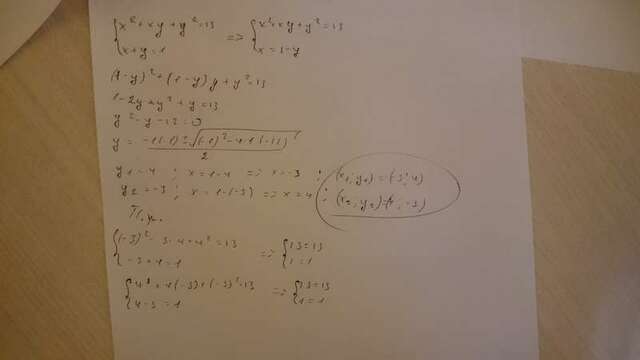 {x²+xy+y²=13 {x+y=1 => {x²+xy+y²=13 {x=1-y
(1-y)²+(1-y)y+y²=13
1-2y+y²+y=13
y²-y-12=0
y₁=4 ; x=1-4 => x=-3 ; (x₁;y₁)=(-3;4)
y₂=-3 ; x=1-(-3) => x=4 ; (x₂;y₂)=(4;-3)
{(-3)²-3·4+4²=13 {-3+4=1 => {13=13 {1=1
{4-3=1 => {13=13 {1=1